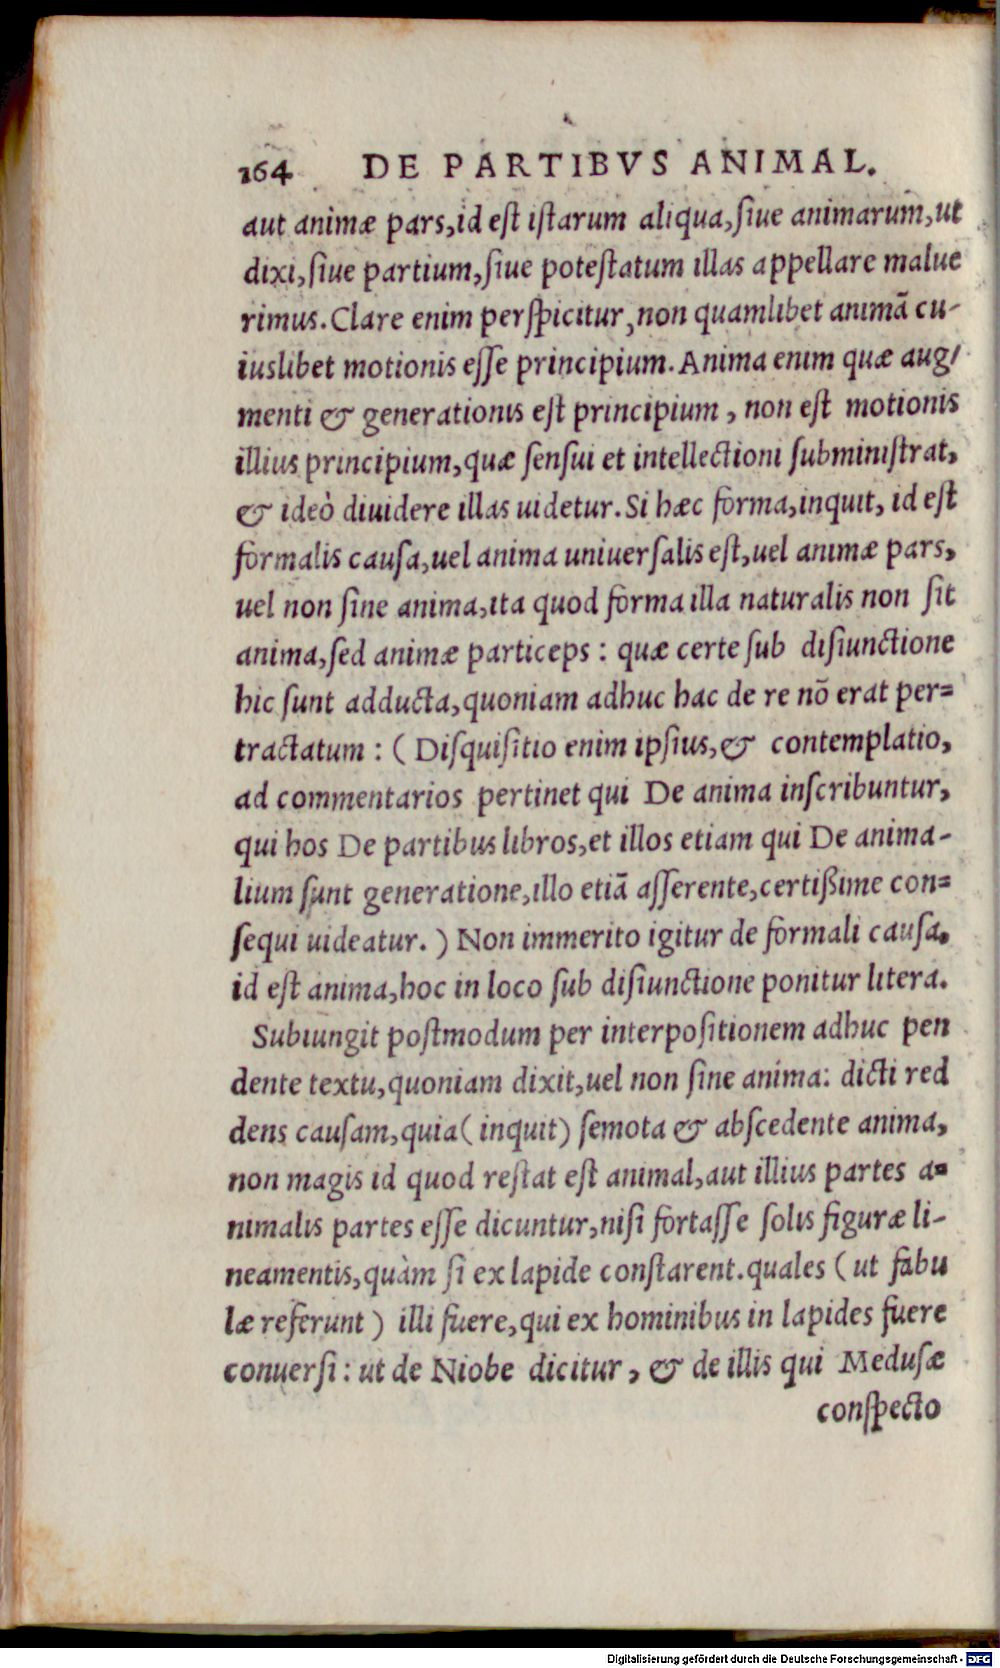 164 DE PARTIBVS ANIMAL.
aut animæ pars, id est istarum aliqua, siue animarum, ut
dixi, siue partium, siue potestatum illas appellare malue
rimus. Clare enim perspicitur, non quamlibet animã cu-
iuslibet motionis esse principium. Anima enim quæ aug-
menti & generationis est principium, non est motionis
illius principium, quæ sensui et intellectioni subministrat,
& ideò diuidere illas uidetur. Si hæc forma, inquit, id est
formalis causa, uel anima uniuersalis est, uel animæ pars,
uel non sine anima, ita quod forma illa naturalis non sit
anima, sed animæ particeps: quæ certe sub disiunctione
hic sunt adducta, quoniam adhuc hac de re nõ erat per=
tractatum: (Disquisitio enim ipsius, & contemplatio,
ad commentarios pertinet qui De anima inscribuntur,
qui hos De partibus libros, et illos etiam qui De anima-
lium sunt generatione, illo etiã asserente, certißime con=
sequi uideatur.) Non immerito igitur de formali causa,
id est anima, hoc in loco sub disiunctione ponitur litera.
Subiungit postmodum per interpositionem adhuc pen
dente textu, quoniam dixit, uel non sine anima: dicti red
dens causam, quia (inquit) semota & abscedente anima,
non magis id quod restat est animal, aut illius partes a=
nimalis partes esse dicuntur, nisi fortasse solis figuræ li-
neamentis, quàm si ex lapide constarent. quales (ut fabu
læ referunt) illi fuere, qui ex hominibus in lapides fuere
conuersi: ut de Niobe dicitur, & de illis qui Medusæ
conspecto
Digitalisierung gefördert durch die Deutsche Forschungsgemeinschaft - DFG